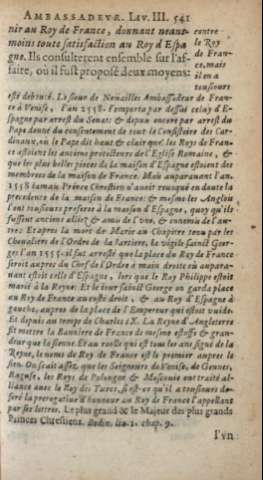 AMBASSADEVR. LIV. III. 541
nir au Roy de France, donnant neant-
moins toute satisfaction au Roy d'Espa
gne. Ils consulterent ensemble sur l'af-
faire, où il fust proposé deux moyens:
contre
le Roy
de Fran-
ce, mais
il en a
tousiours
esté debouté. Le sieur de Nouailles Ambassadeur de Fran-
ce à Venise, l'an 1558. l'emporta par dessus celuy d'E-
spagne par arrest du Senat: & depuis encore par arrest du
Pape donné du consentement de tout le Consistoire des Car-
dinaux, où le Pape dit haut & clair que les Roys de Fran-
ce estoient les anciens protecteurs de l'Eglise Romaine, &
que les plus belles pieces de la maison d'Espagne estoient des
membres de la maison de France. Mais auparauant l'an
1558 iamais Prince Chrestien n'auoit reuoqué en doute la
precedence de la maison de France: & mesmes les Anglois
l'ont tousiours preferee à la maison d'Espagne, quoy qu'ils
fussent anciens alliez & amis de l'vne, & ennemis de l'au-
tre: Et apres la mort de Marie au Chapitre tenu par les
Cheualiers de l'Ordre de la Iartiere, la vigile sainct Geor-
ges l'an 1555. il fut arresté que la place du Roy de France
seroit aupres du Chef de l'Ordre à main droite où aupara-
uant estoit celle d'Espagne, lors que le Roy Philippe estoit
marié à la Royne: Et le iour sainct George on garda place
au Roy de France au costé droit, & au Roy d'Espagne à
gauche, aupres de la place de l'Empereur qui estoit vuide.
Et depuis au temps de Charles IX. La Royne d'Angleterre
fit mettre la Banniere de France de mesme estoffe & gran-
deur que la sienne. Et au roolle qui est tous les ans signé de la
Reyne, le nom du Roy de France est le premier aupres le
sien. On sçait assez que les Seigneurs de Venise, de Gennes,
Raguse, les Roys de Polongne & Moscouie ont traité al-
liance auec le Roy des Turcs, si est-ce qu'il a tousiours de-
feré la prerogatiue d'honneur au Roy de France l'appellant
par ses lettres, Le plus grand & le Majeur des plus grands
Princes Chrestiens. Bodin. liu. 1. chap. 9.
l'vn